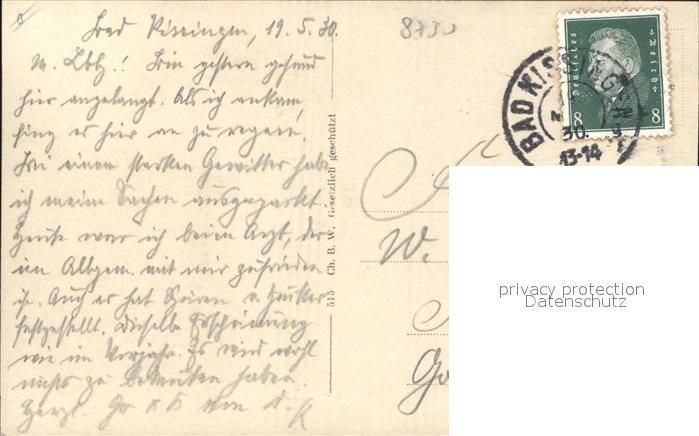 Bad Kissingen, 19. 5. 30.
8730
M. Lbst.! Bin gestern gesund
hier angelangt. Als ich ankam,
fing es hier an zu regnen.
Bei einem starken Gewitter hab
ich meine Sachen ausgepackt.
Heute war ich beim Arzt, der
im Allgem. mit mir zufrieden
ist. Auch er hat Spuren v. Zucker
festgestellt. Dieselbe Erscheinung
wie im Vorjahr. Es wird wohl
nichts zu bedeuten haben.
Herzl. Gr u K von
515 Ch. B. W. Gesetzlich geschützt
Deutsches Reich
8 8
BAD KISSINGEN
30.
13-14
W.
privacy protection
Datenschutz